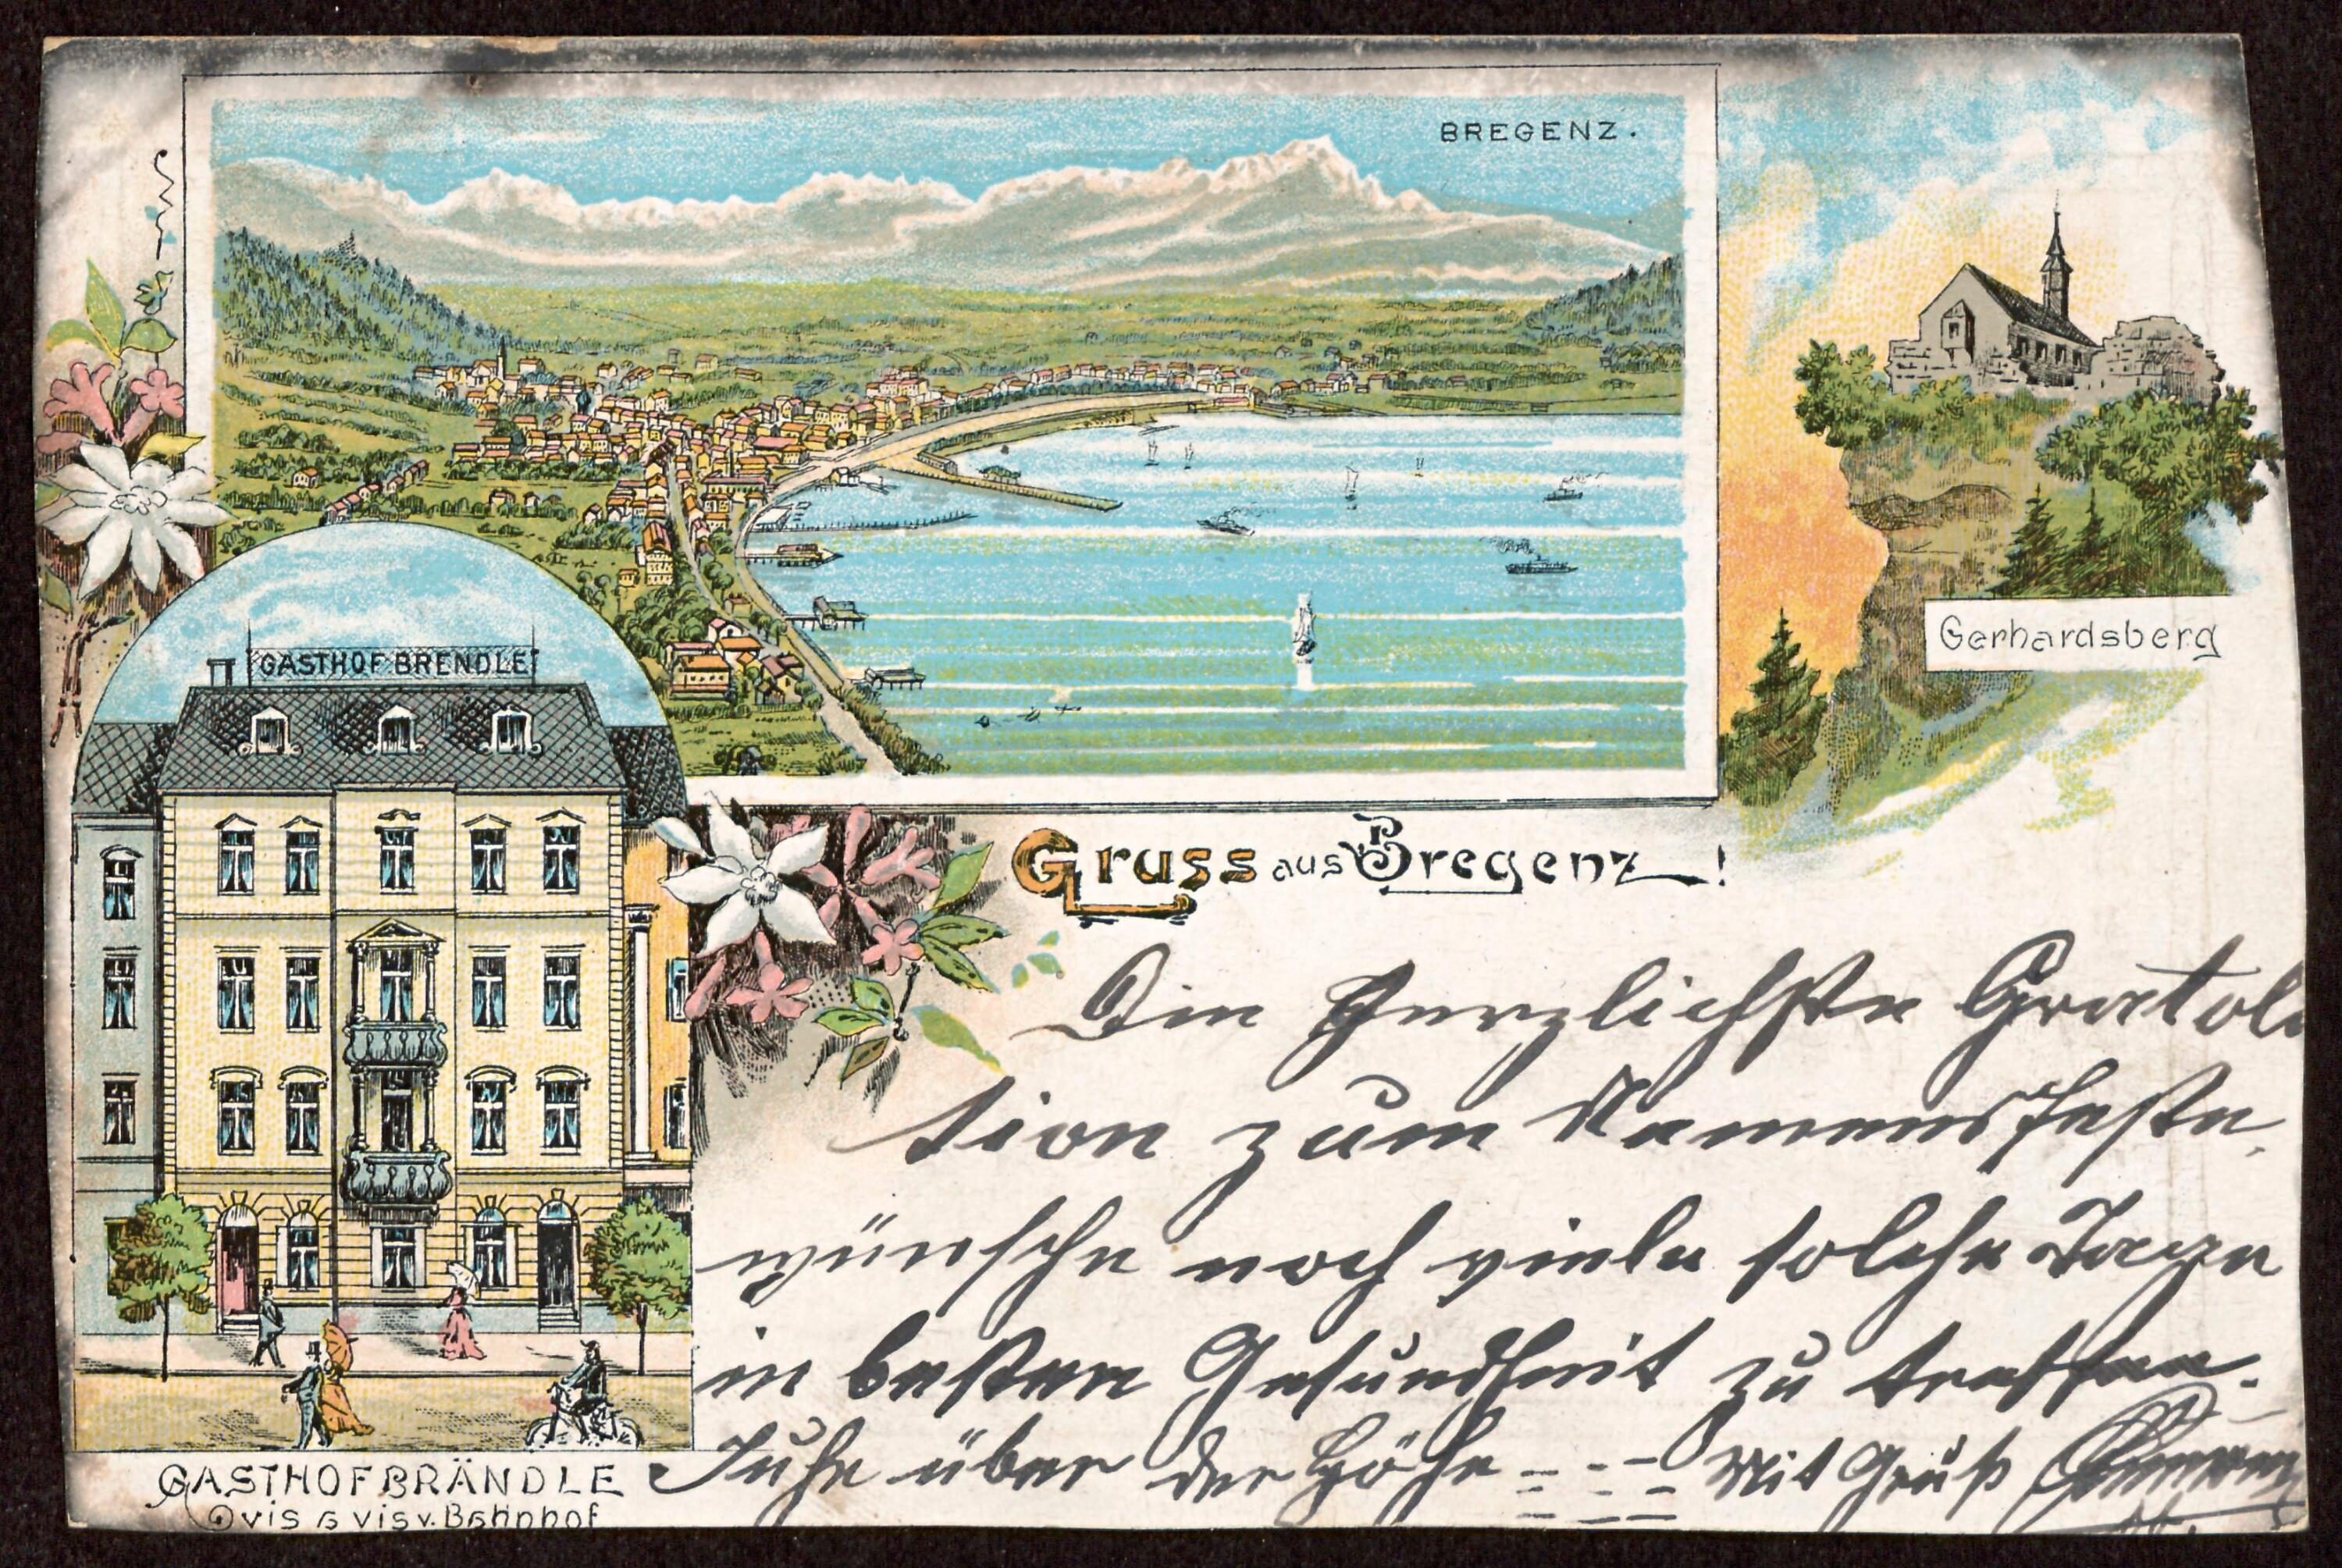 BREGENZ.
Gerhardsberg
GASTHOF BRENDLE
Gruss aus Bregenz!
Die Herzlichste Gratola
tion zum Namensfeste.
wünsche noch viele solche Tage
in besten Gesundheit zu treffen.
über der Höhe --- Mit Gruß
GASTHOF BRÄNDLE
vis a vis v. Bahnhof